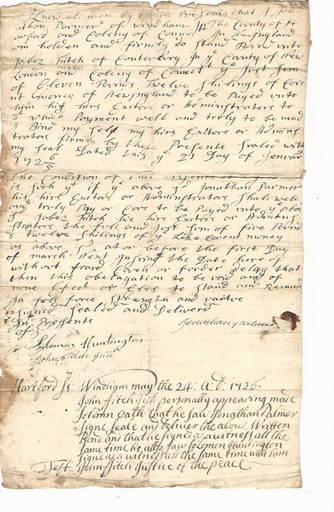 Know all men by these Presents that I Jon
athan Parmer of windham In The County of H
artford and Colony of Connet In Newengland
am holden and firmly do Stand Bound unto
Jabez Fitch of Canterbury In ye County of New
London and Colony of Connett In ye Just Som
of Eleven Pounds twelve Shilings of Coren
t money of Newengland to be Payed unto
him his hirs Exctors or Administrators to
ye which Payment well and truly to be mad
I Bind my Self my hirs Exctors or Adminis
trators firmly by these Presents Sealed with
my Seal Dated this ye 21 Day of Jenuar
1725/6
The Condition of this
is Such yt if ye above sd Jonathan Parmer
his hirs Exctors or Administrators Shall well
and truly Pay or Cose to be Payed unto ye above
Jabez Fitch his hirs Exctors or Adminis
trators the full and Just Som of five Pound
Twelve Shilings of ye Like Corent money
as above sd at or before the first Day
of march Next Insuing the Date here of
without fraud or forder Delay that
then this obelagation to be void and of
none Efect or Eles to Stand and Remain
In full Force Strength and vartue
Signed Sealed and Deliverd
In Presents
of
Solomon Huntington
John Fitch
Hartford Ss. Windham may the 2st. A.D. 1726.
John Fitch personally appearing made
Solemn Oath that he saw Jonathan Palmer
Signe Seale and deliver the above Written
Bond and that he signed as a witness att the
same time he allso saw Solomon Huntington
signe as a witness att the same time with him
Test John Fitch Justice of the peace